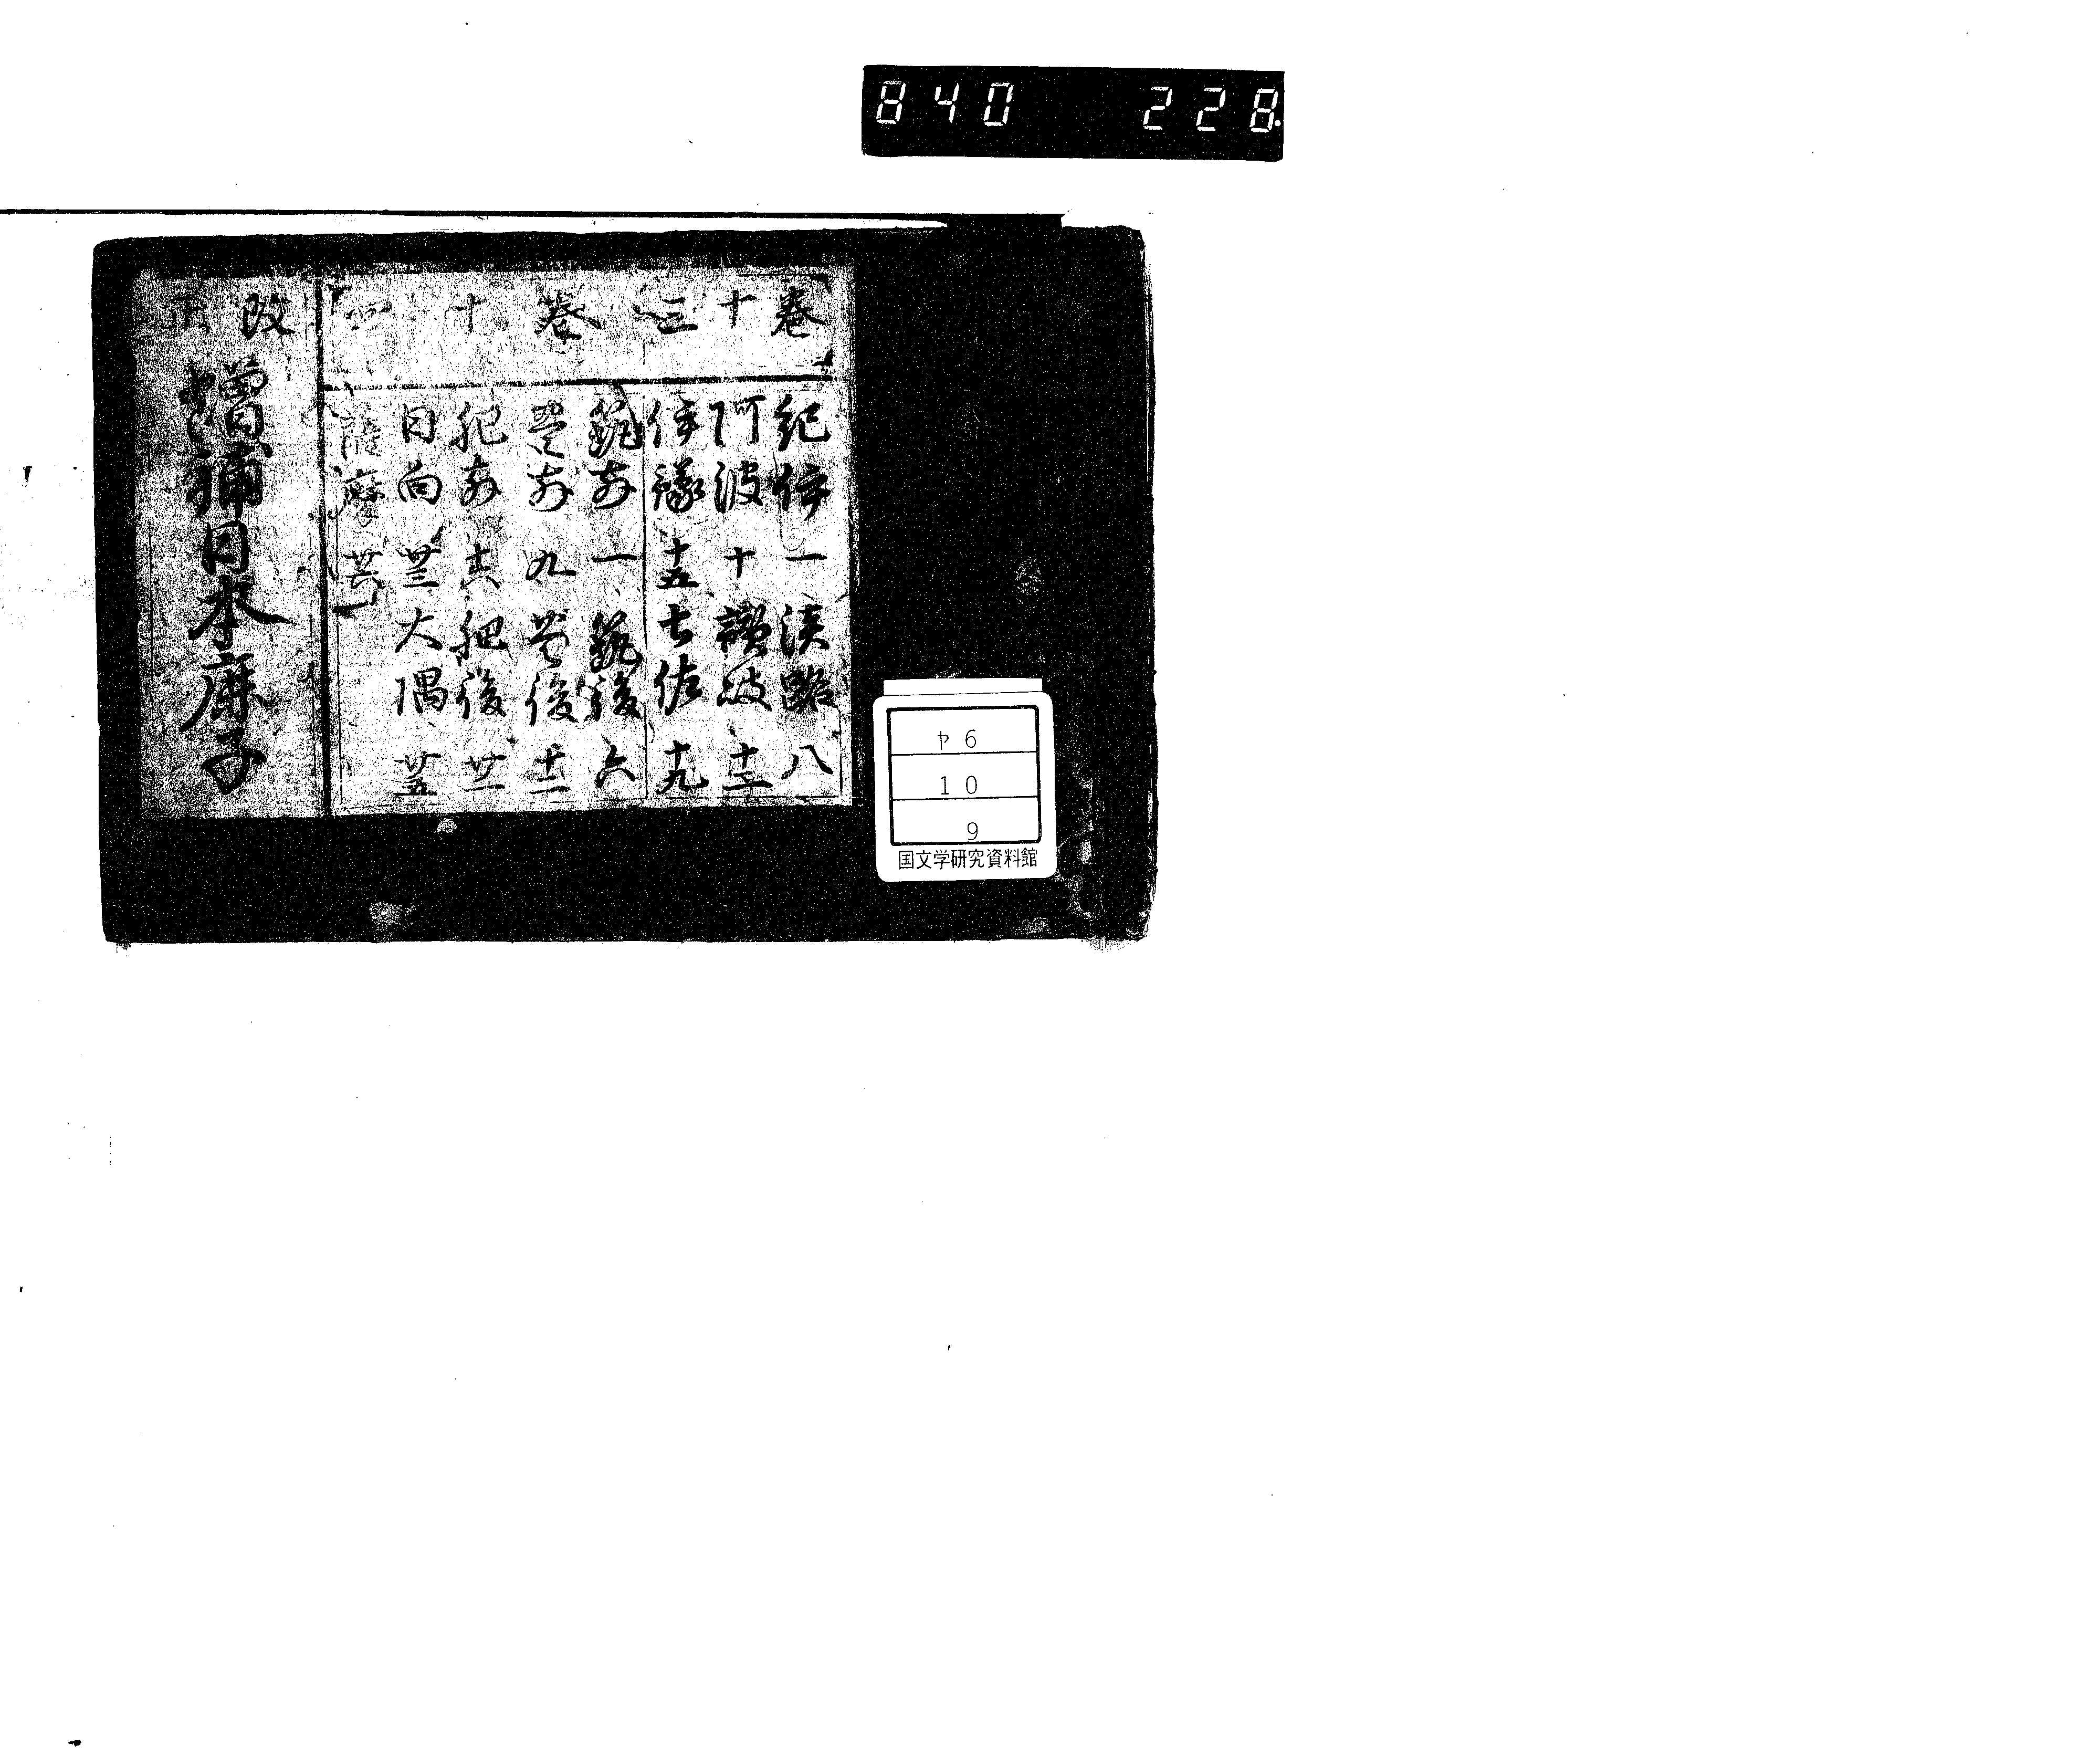 840 228
巻十三
紀伊 一 淡路 八
阿波 十 讃岐 十二
伊豫 十五 土佐 十九
巻十四
筑前 一 筑後 六
豊前 九 豊後 十二
肥前 十六 肥後 廿一
日向 廿三 大隅 廿五
薩摩 廿六
改正
増補日本鹿子
ヤ6
10
9
国文学研究資料館